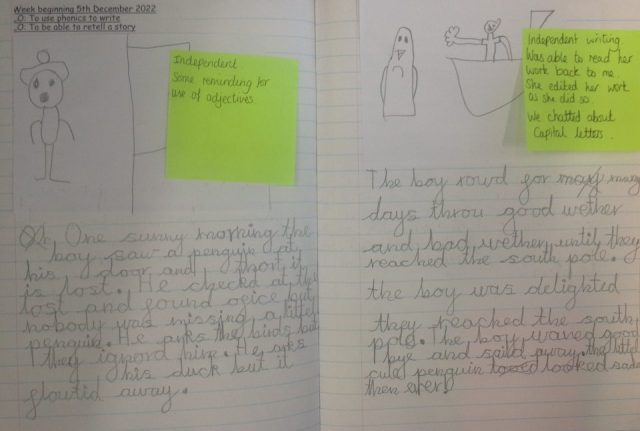 Week beginning 5th December 2022
LO: To use phonics to write
LO: To be able to retell a story
Independent
Some reminding for
use of adjectives.
One sunny morning the
boy saw a penguin at
his door and thort it
is lost. He checked at the
lost and found ofice but
nobody was missing a littel
penguin. He asks the birds but
they ignord him. He asks
his duck but it
flowtid away.
Independent writing.
Was able to read her
work back to me.
She edited her work
as she did so.
We chatted about
Capital letters.
The boy rowd for many
days throu good wether
and bad wether until they
reached the south pole.
the boy was delighted
they reached the south
pole. The boy waved good
bye and saild away. the littel
cute penguin looked sad
then ever!